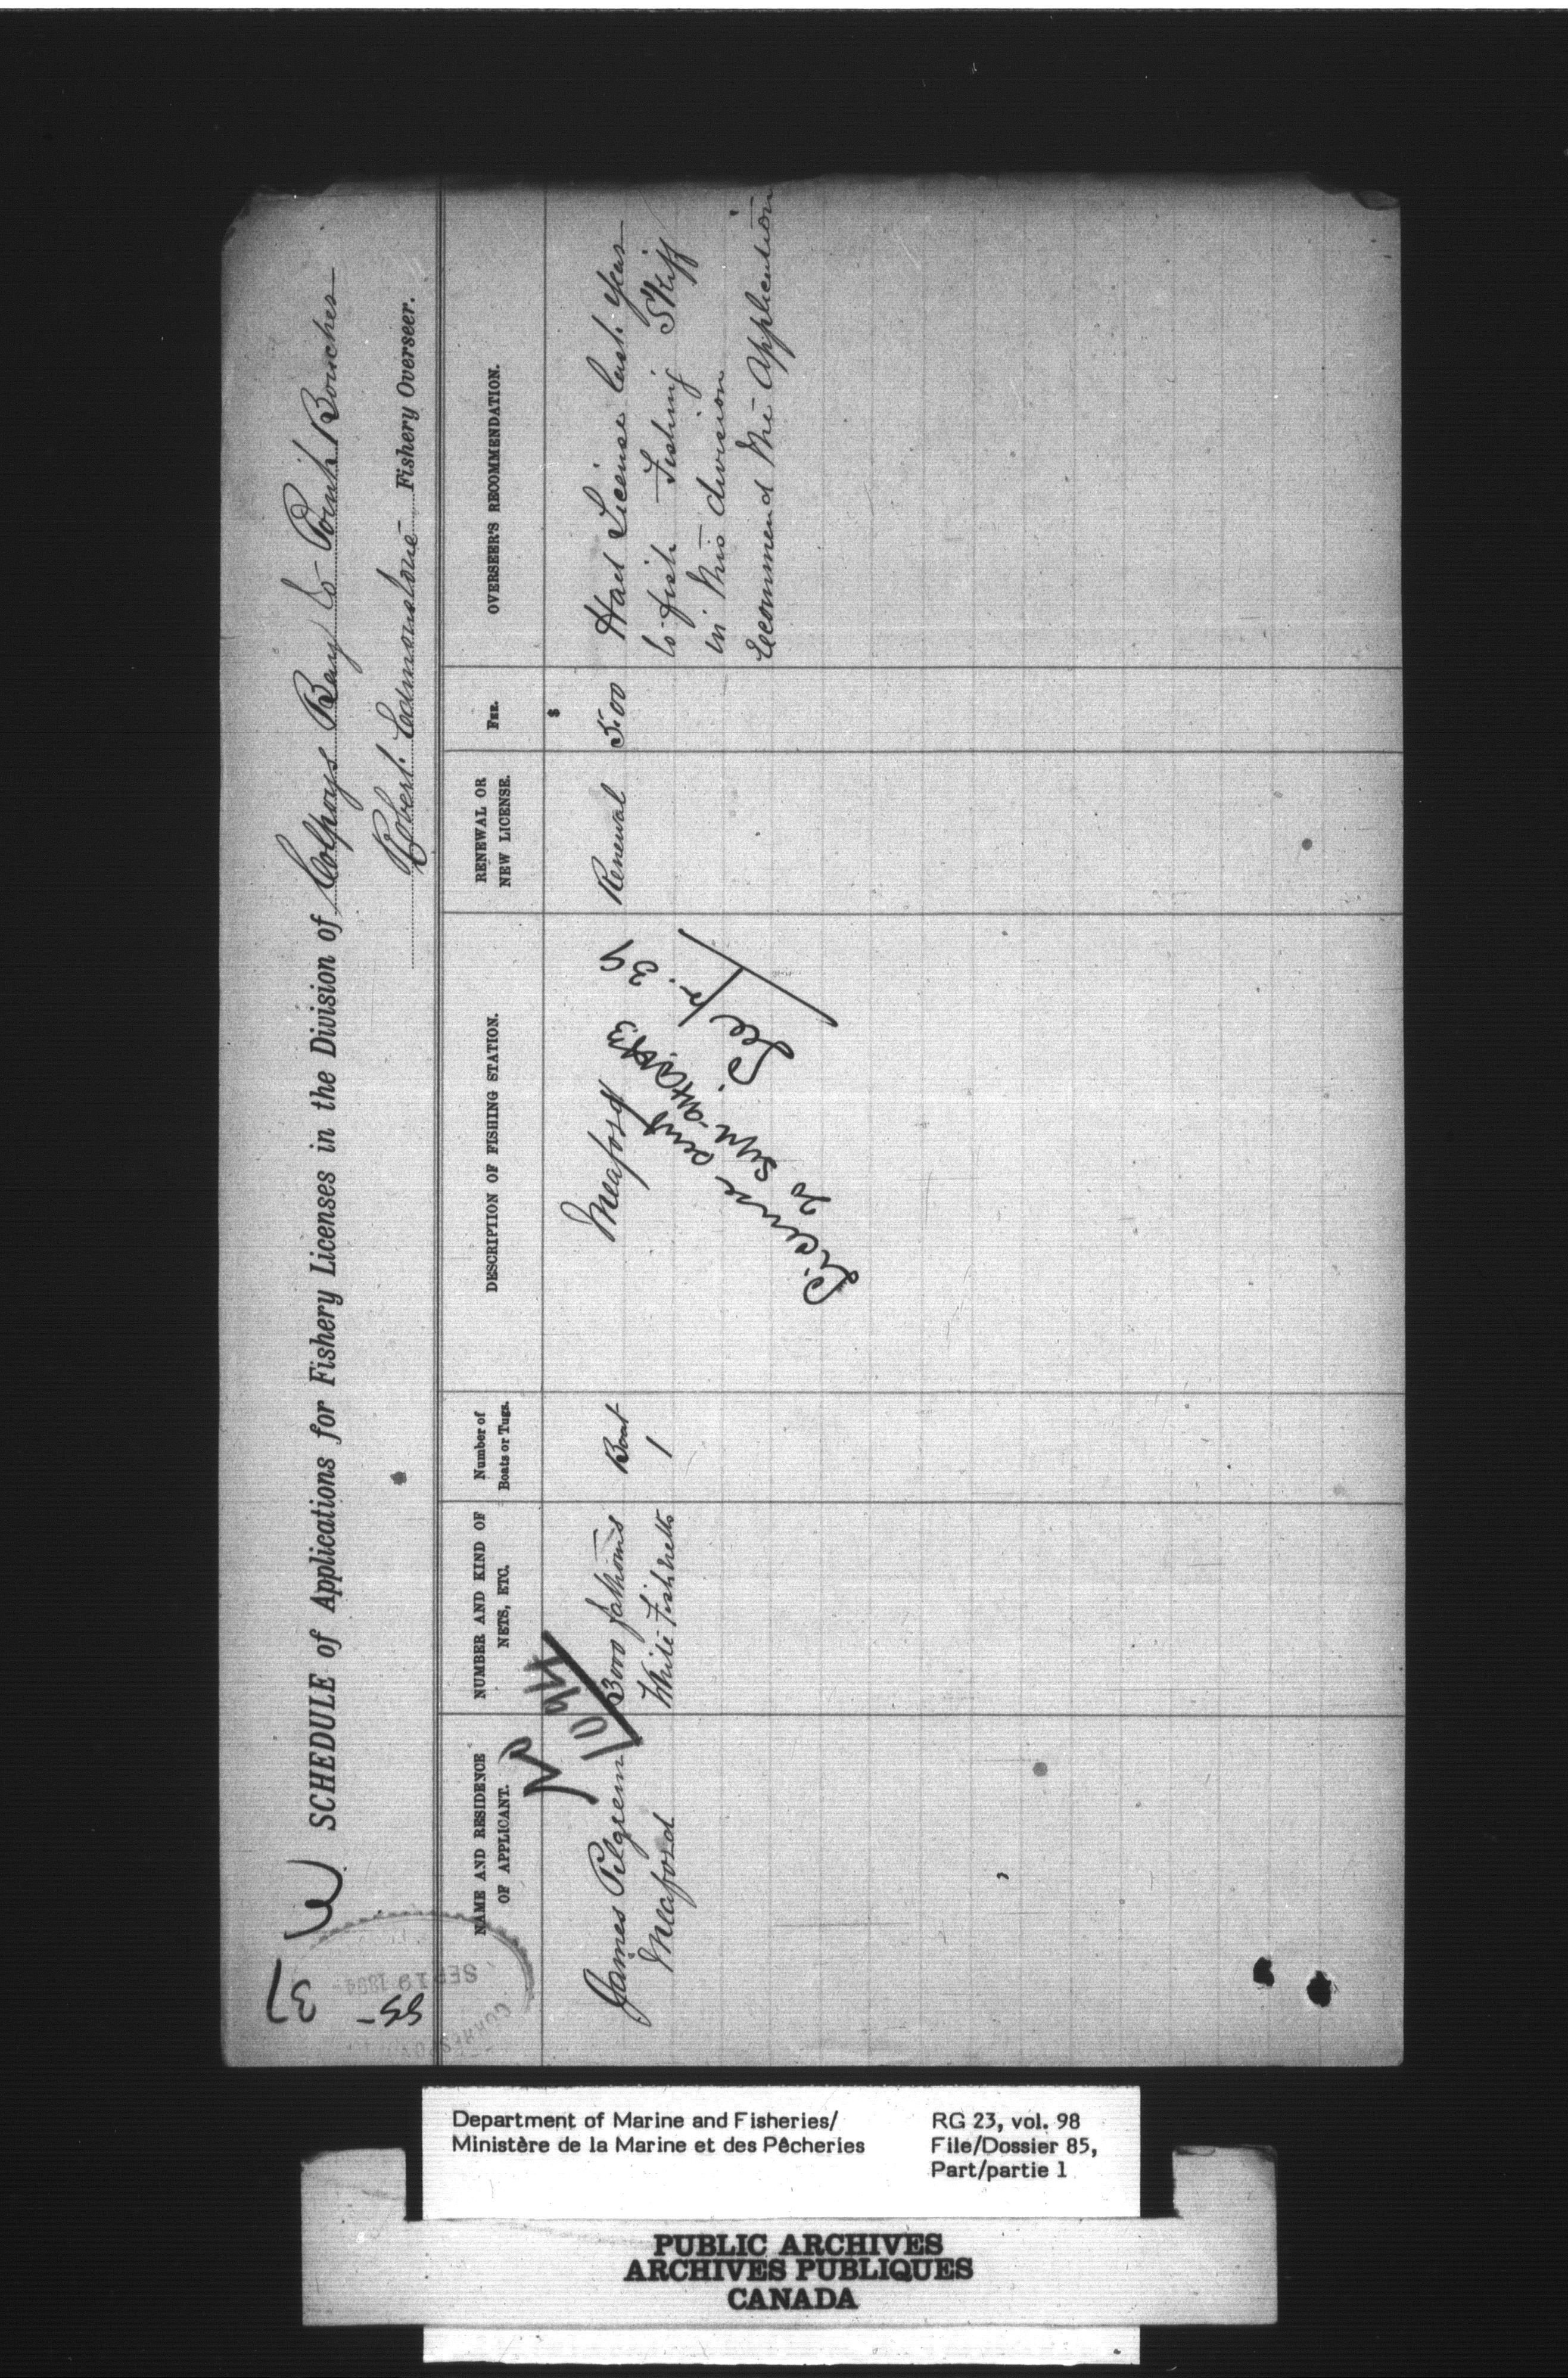 37
3
55-
SEP 19 1894
SCHEDULE of Applications for Fishery Licenses in the Division of Colpoys Bay to Point Boucher
Robert Fishery Overseer.
NAME AND RESIDENCE OF APPLICANT.
NUMBER AND KIND OF NETS, ETC.
Number of Boats or Tugs.
DESCRIPTION OF FISHING STATION.
RENEWAL OR NEW LICENSE.
FEE.
OVERSEER'S RECOMMENDATION.
$
No 1094
James Pilgrem
Meaford
3000 fathoms
White Fish netts
Boat
1
Meaford
Renewal
5.00
Had License last year
to fish Fishing Skiff
in this division
Recommend the Application
License sent
20 Sept-94
See p. 39
Department of Marine and Fisheries/
Ministère de la Marine et des Pêcheries
RG 23, vol. 98
File/Dossier 85,
Part/partie 1
PUBLIC ARCHIVES
ARCHIVES PUBLIQUES
CANADA